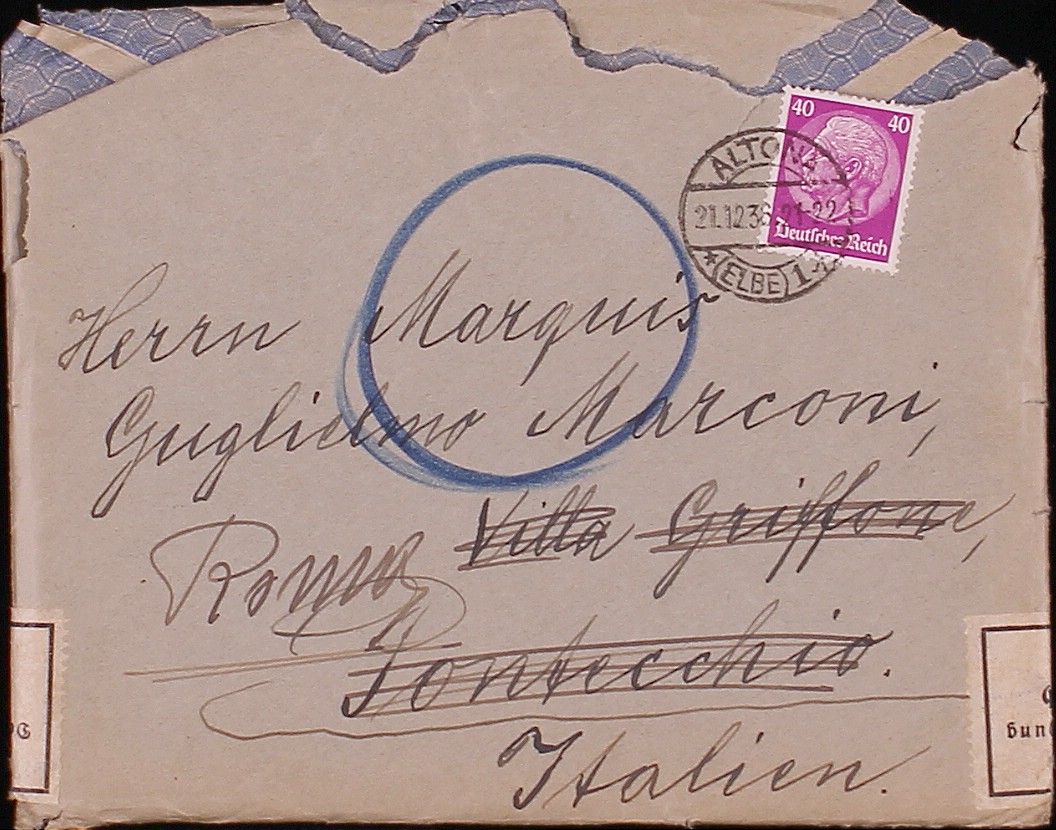 40 40
Deutsches Reich
ALTONA
21.12.36 21-22
* (ELBE) 1
Herrn Marquis
Guglielmo Marconi,
Villa Griffone,
Roma
Pontecchio.
Italien.